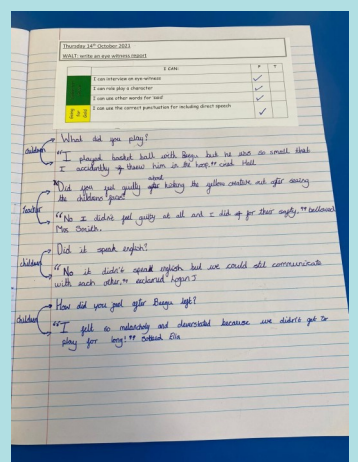 Thursday 14th October 2021
WALT: write an eye witness report
I CAN:
P
T
I can interview an eye-witness
I can role play a character
I can use other words for 'said'
I can use the correct punctuation for including direct speech
children
What did you play?
"I played basket ball with Beegu but he was so small that
I accidently threw him in the hoop." cried Hall
about
teacher
Did you feel guilty after kicking the yellow creature out after seeing
the childrens faces?
"No I didn't feel guilty at all and I did it for their safety," bellowed
Mrs Smith.
children
Did it speak english?
"No it didn't speak english but we could still communicate
with each other," exclaimed Logan J
children
How did you feel after Beegu left?
"I felt so melancholy and deverstated because we didn't get to
play for long!" sobbed Ella